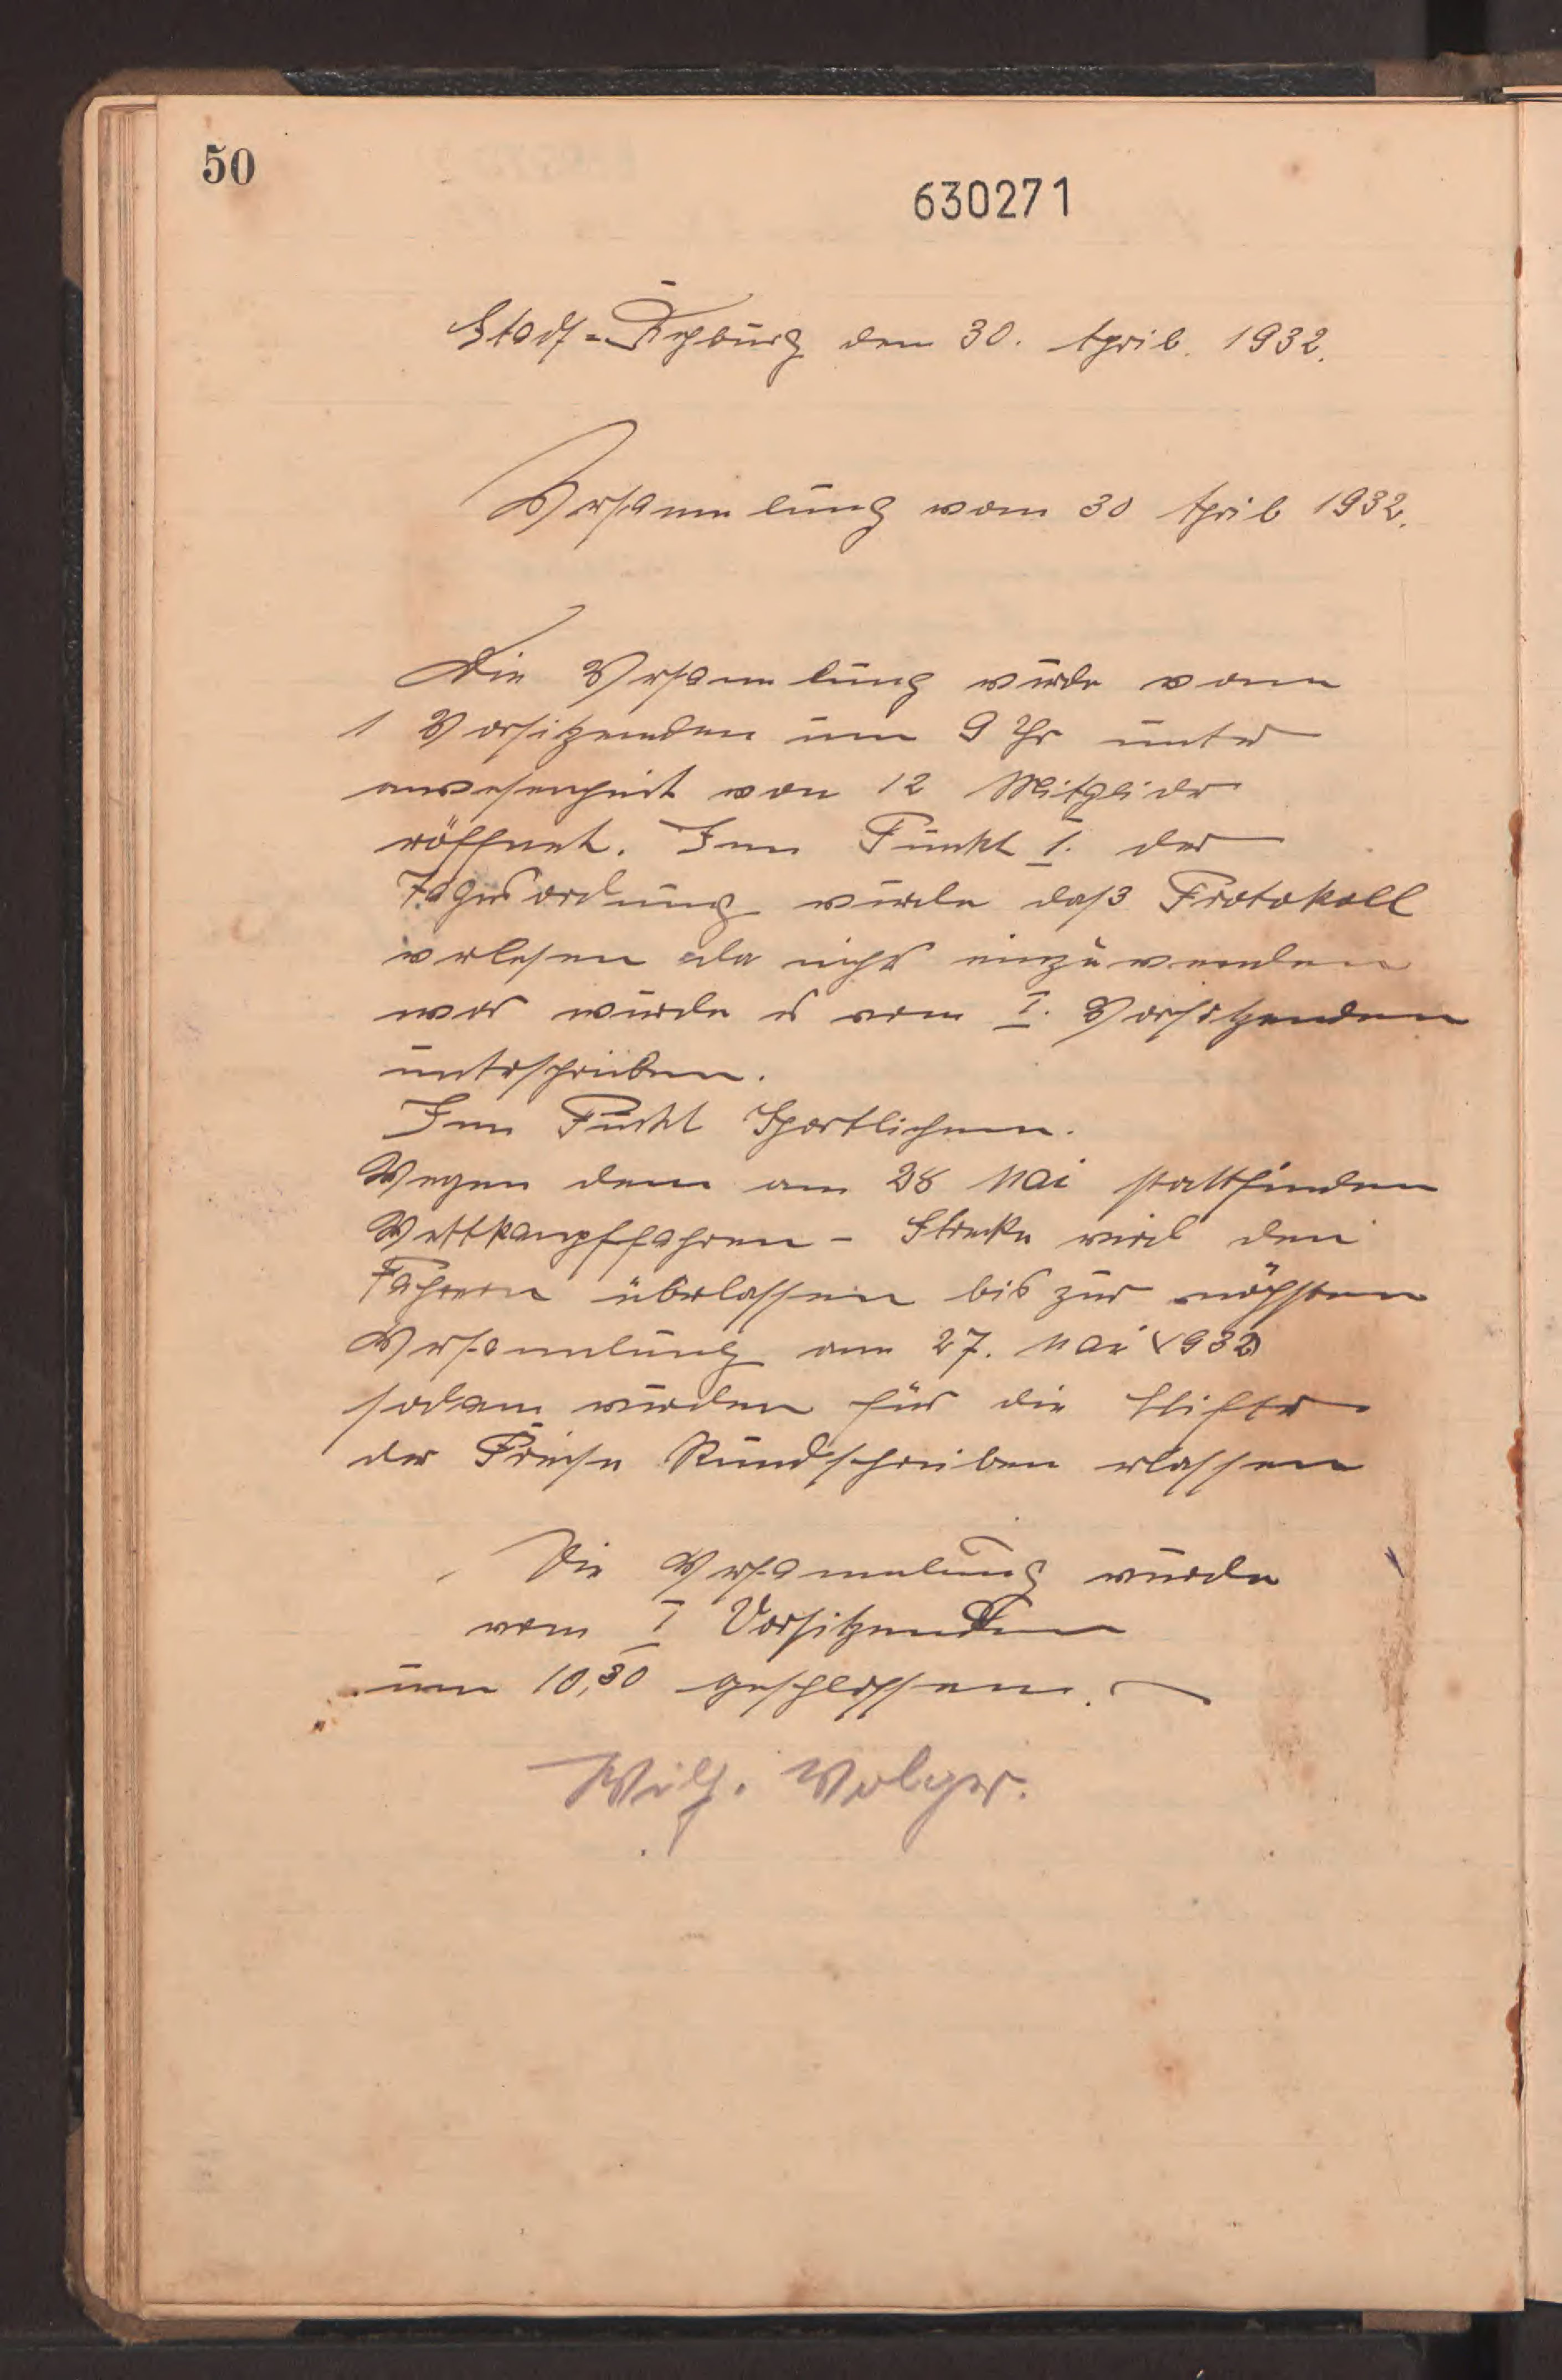 50
630271
Stadt=Rehburg den 30. April. 1932.
Versammlung vom 30 April 1932.
Die Versammlung wurde vom
1 Vorsitzenden um 9 Uhr unter
anwesenheit von 12 Mitglider
eröffnet. Im Punkt I. der
Tagesordnung wurde daß Protokoll
verlesen da nichs einzuwenden
war wurde es vom I. Vorsitzenden
unterschrieben.
Im Punkt Sportlichem.
Wegen dem am 28 Mai stattfinden
Wettkampffahren - Strecke wird den
Fahrern überlassen bis zur nächsten
Versammlung am 27. Mai 1932
sodann wurden für die Stifter
der Preise Rundschreiben erlassen
Die Versammlung wurde
vom I Vorsitzenden
um 10,30 geschlossen.
Wilh. Volger.